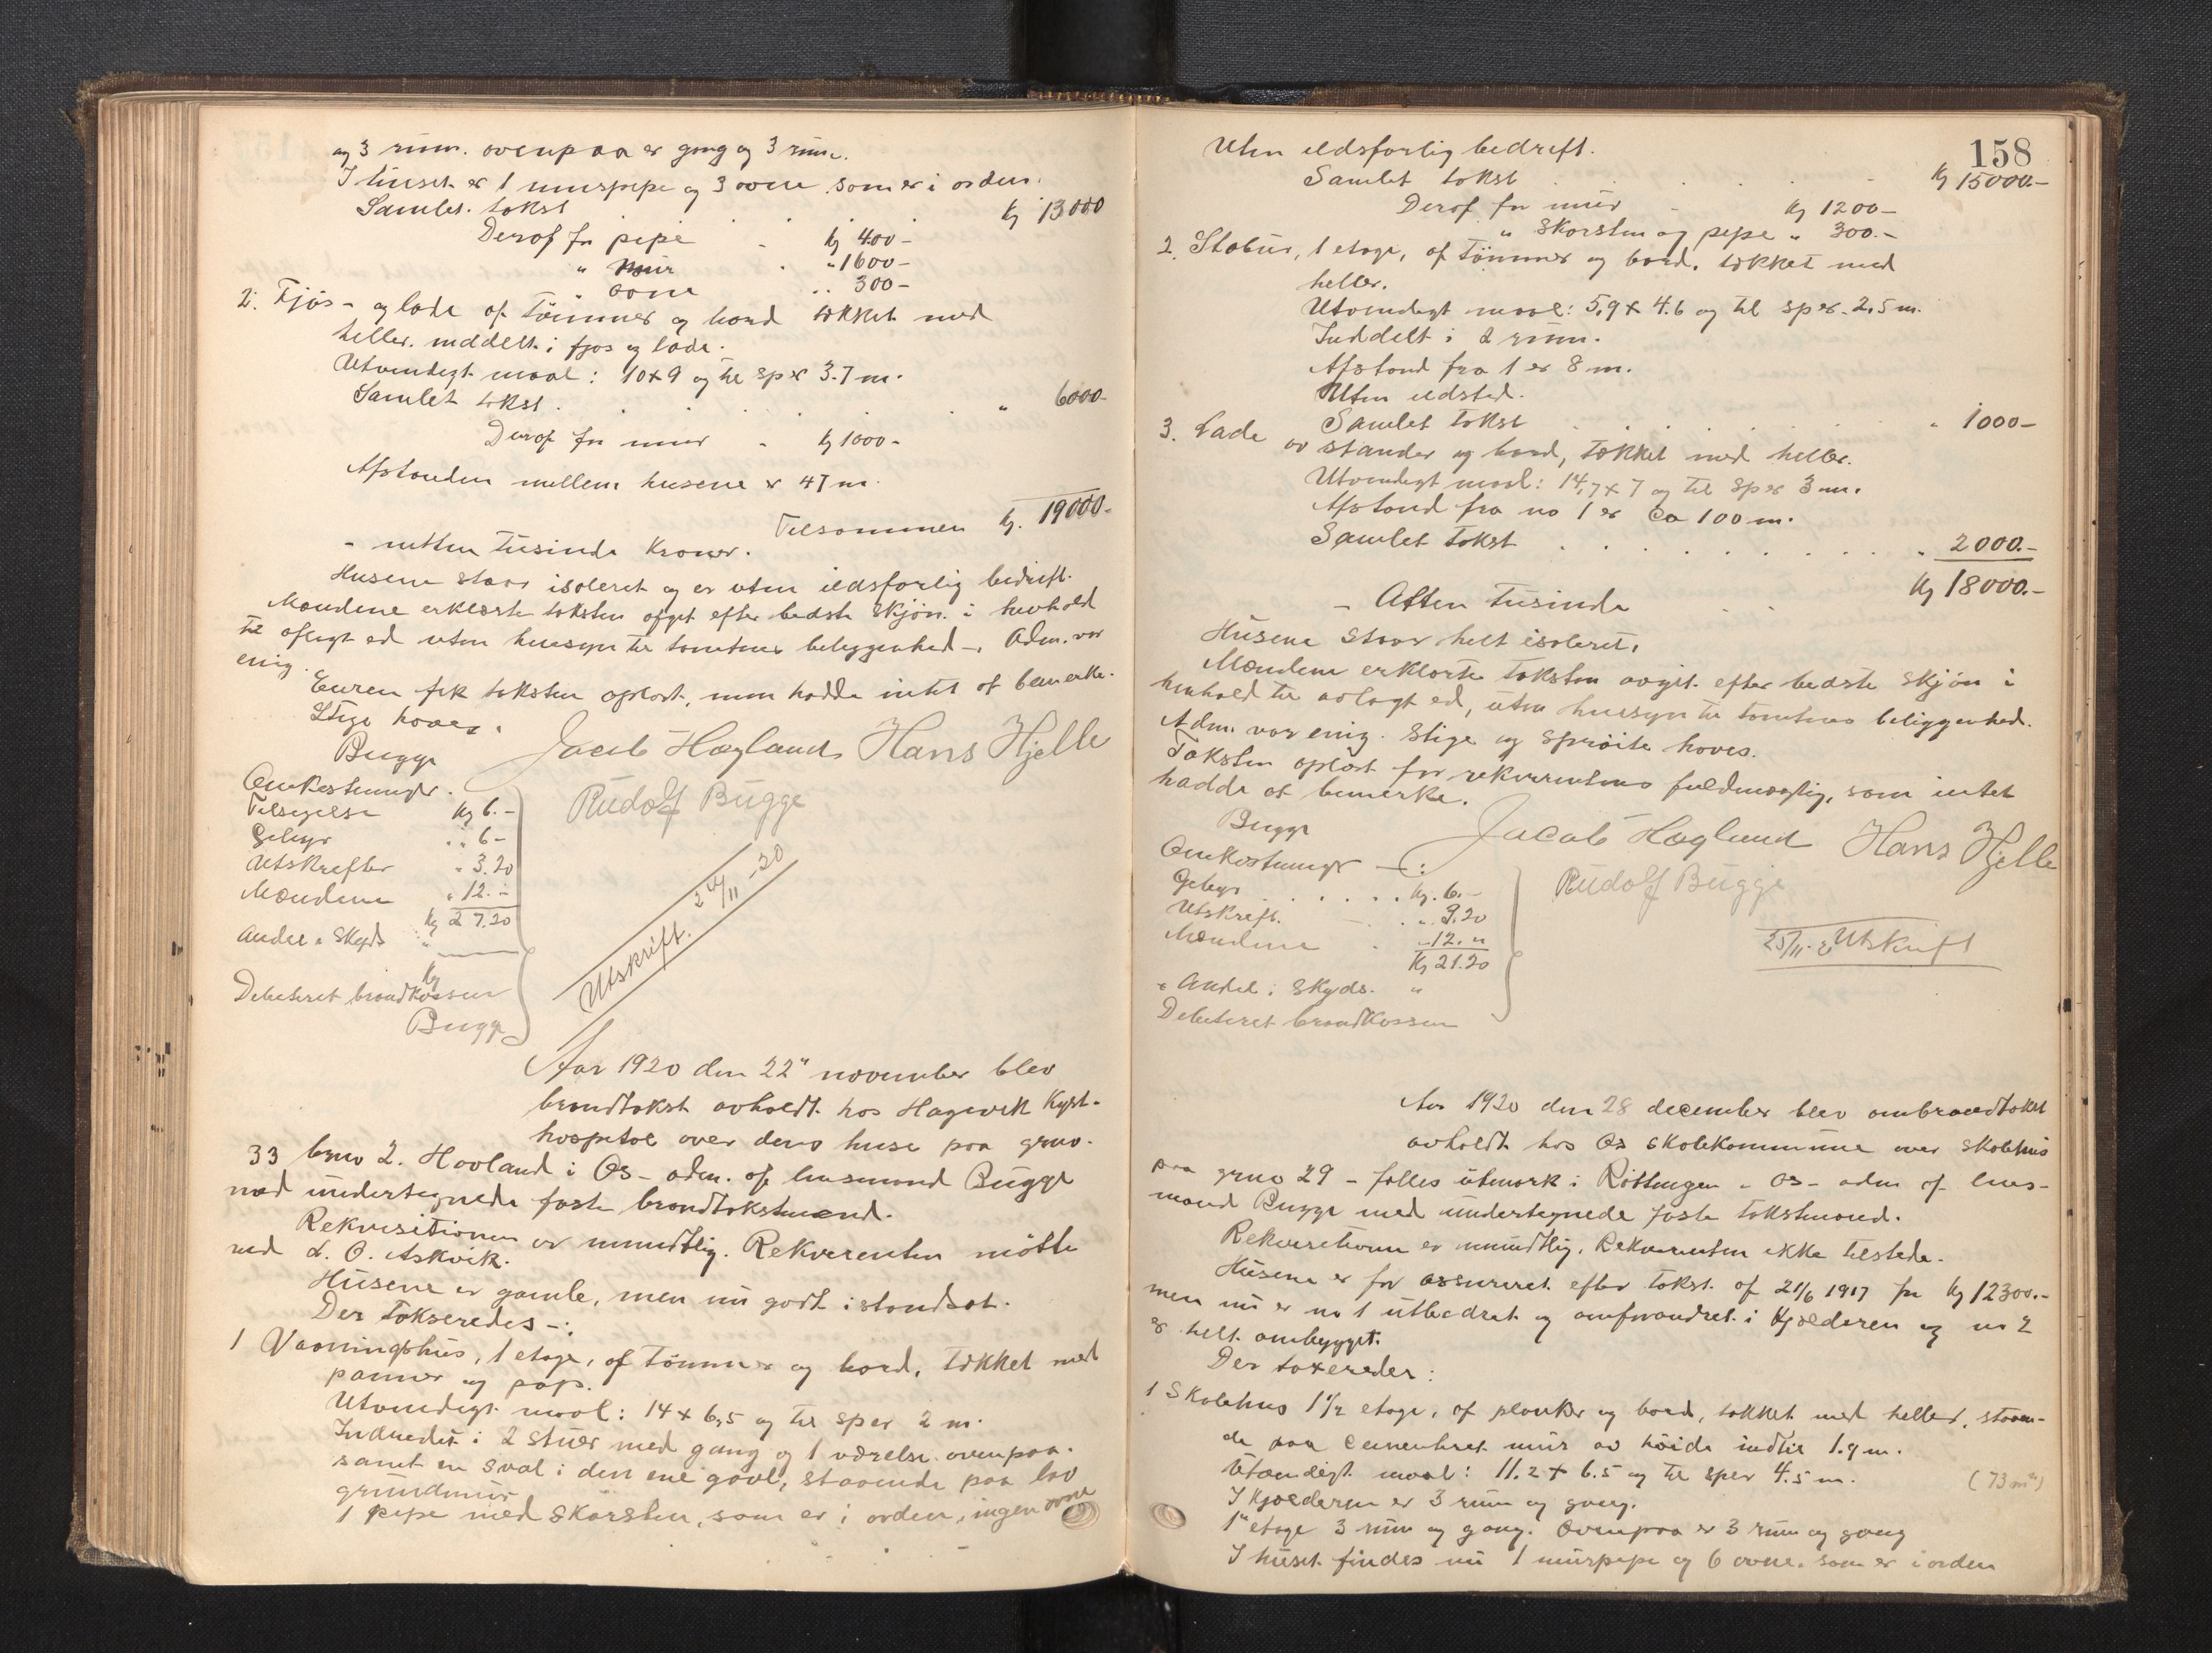 og 3 rum. ovenpaa er gang og 3 rum.
I huset er 1 murpipe og 3 ovne som er i orden.
Samlet takst Kr 13000
Derof for pipe - Kr 400 -
" mur - " 1600 -
" ovne " 300 -
2. Fjøs - og lade of tømmer og bord tækket med
heller. inddelt i fjøs og lade.
Utvendigt maal: 10 x 9 og til sper 3.7 m.
Samlet takst . . . . . . " 6000-
Derof for mur - Kr 1000 -
Afstanden mellem husene er 47 m.
Tilsammen Kr. 19000.-
- nitten tusinde kroner.
Husene staar isoleret og er uten ildsfarlig bedrift.
Mændene erklærte taksten afgit efter bedste skjøn i henhold
til aflagt ed uten hensyn til tomtens beliggenhed -. Adm. var
enig.
Eieren fik taksten oplæst, men hadde intet at bemerke.
Stige haves.
Bugge Jacob Hægland Hans Hjelle
Rudolf Bugge
Omkostninger.
Tilsigelse Kr 6.-
Gebyr " 6 -
Utskrifter " 3.20
Mændene " 12.-
Kr 27.20
Andel i Skyds "
Kr
Debiteret brandkassen
Bugge
Utskrift. 24/11 -20
Aar 1920 den 22" november blev
brandtakst avholdt hos Hagevik Kyst-
hospital over dens huse paa grno.
33 brno 2. Hovland i Os - adm. of lensmand Bugge
med undertegnede faste brandtakstmænd.
Rekvisitionen er mundtlig. Rekvirenten møtte
ved L. O. Askvik.
Husene er gamle, men nu godt istandsat.
Der takseredes -:
1 Vaaningshus, 1 etage, of tømmer og bord, tækket med
panner og pap.
Utvendigt maal: 14 x 6,5 og til sper 2 m.
Indredet i 2 stuer med gang og 1 værelse ovenpaa.
samt en sval i den ene gavl, staaende paa lav
grundmur
1 pipe med skorsten, som er i orden, ingen ovne
158
Uten ildsfarlig bedrift.
Samlet takst . . . . . Kr 15000.-
Derof for mur - Kr 1200 -
" Skorsten og pipe " 300.-
2. Stabur, 1 etage, of tømmer og bord, tækket med
heller.
Utvendigt maal: 5,9 x 4.6 og til sper 2,5 m.
Inddelt i 2 rum.
Afstand fra 1 er 8 m.
Uten ildsted.
Samlet takst . . . . . . " 1000 -
3. Lade av stander og bord, tækket med heller.
Utvendigt maal: 14,7 x 7 og til sper 3 m.
Afstand fra no 1 er ca 100 m.
Samlet takst . . . . . . . . . " 2000.-
Kr 18000.-
- Atten tusinde
Husene staar helt isoleret.
Mændene erklærte taksten avgit efter bedste skjøn i
henhold til avlagt ed, uten hensyn til tomtens beliggenhed.
Adm. var enig. Stige og sprøite haves.
Taksten oplæst for rekvirentens fuldmægtig, som intet
hadde at bemerke.
Bugge Jacob Hægland Hans Hjelle
Rudolf Bugge
Omkostninger -:
Gebyr . . . . . Kr. 6.-
Utskrift. " 3.20
Mændene " 12. "
Kr 21.20
" Andel i Skyds. "
Debiteret brandkassen
25/11 Utskrift
Aar 1920 den 28 december blev ombrandtakst
avholdt hos Os skolekommune over skolehus
paa grno 29 - fælles utmark i Røttingen - Os - adm of lens-
mand Bugge med undertegnede faste takstmænd.
Rekvisitionen er mundtlig. Rekvirenten ikke tilstede.
Husene er før assureret efter takst of 21/6 1917 for Kr 12300.-
men nu er no 1 utbedret og omforandret i kjælderen og no 2
er helt ombygget.
Der taxeredes:
1 Skolehus 1 1/2 etage, of planker og bord, tækket med heller, staaen-
de paa cementeret mur av høide indtil 1.9 m.
Utvendigt maal: 11.2 x 6.5 og til sper 4.5 m. (73 m²)
I kjælderen er 3 rum og gang.
1" etage 3 rum og gang. Ovenpaa er 3 rum og gang
I huset findes nu 1 murpipe og 6 ovne. som er i orden